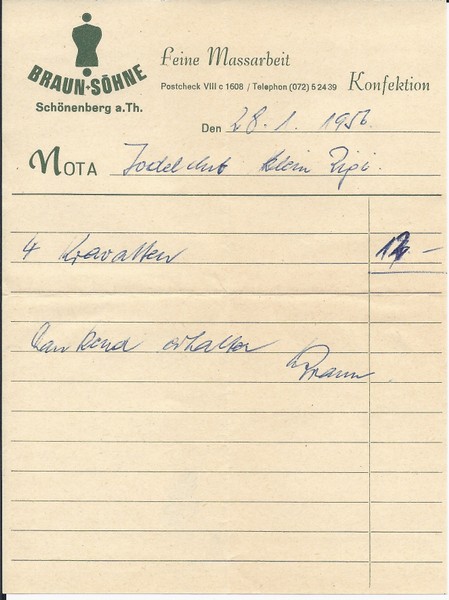 BRAUN+SÖHNE
Schönenberg a.Th.
Feine Massarbeit
Postcheck VIII c 1608 / Telephon (072) 5 24 39
Konfektion
Den 28. 1. 1956.
NOTA Jodelclub klein Rigi.
4 Kravatten –
dankend erhalten
Braun